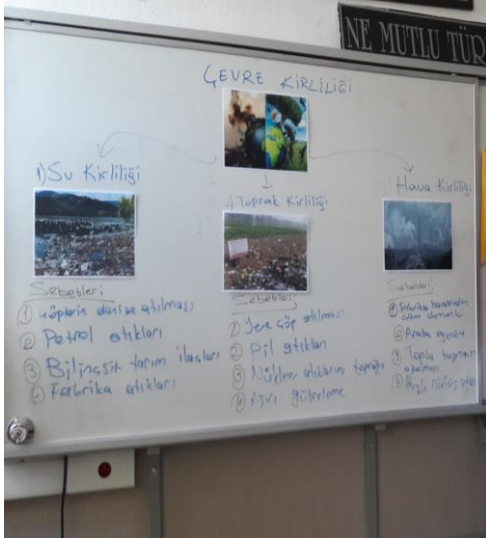 NE MUTLU TÜR
ÇEVRE KİRLİLİĞİ
1) Su Kirliliği
Sebebleri
1 çöplerin denize atılması
2 Petrol atıkları
3 Bilinçsiz tarım ilaçları
4 Fabrika atıkları
Toprak Kirliliği
Sebebleri
1 Yere çöp atılması
2 Pil atıkları
3 Nükleer atıkların toprağa
4 Aşırı gübreleme
Hava Kirliliği
Sebebleri
1 Fabrika bacalarından
çıkan dumanlar
2 Araba egzozu
3 Toplu taşımanın
4 Hızlı nüfus